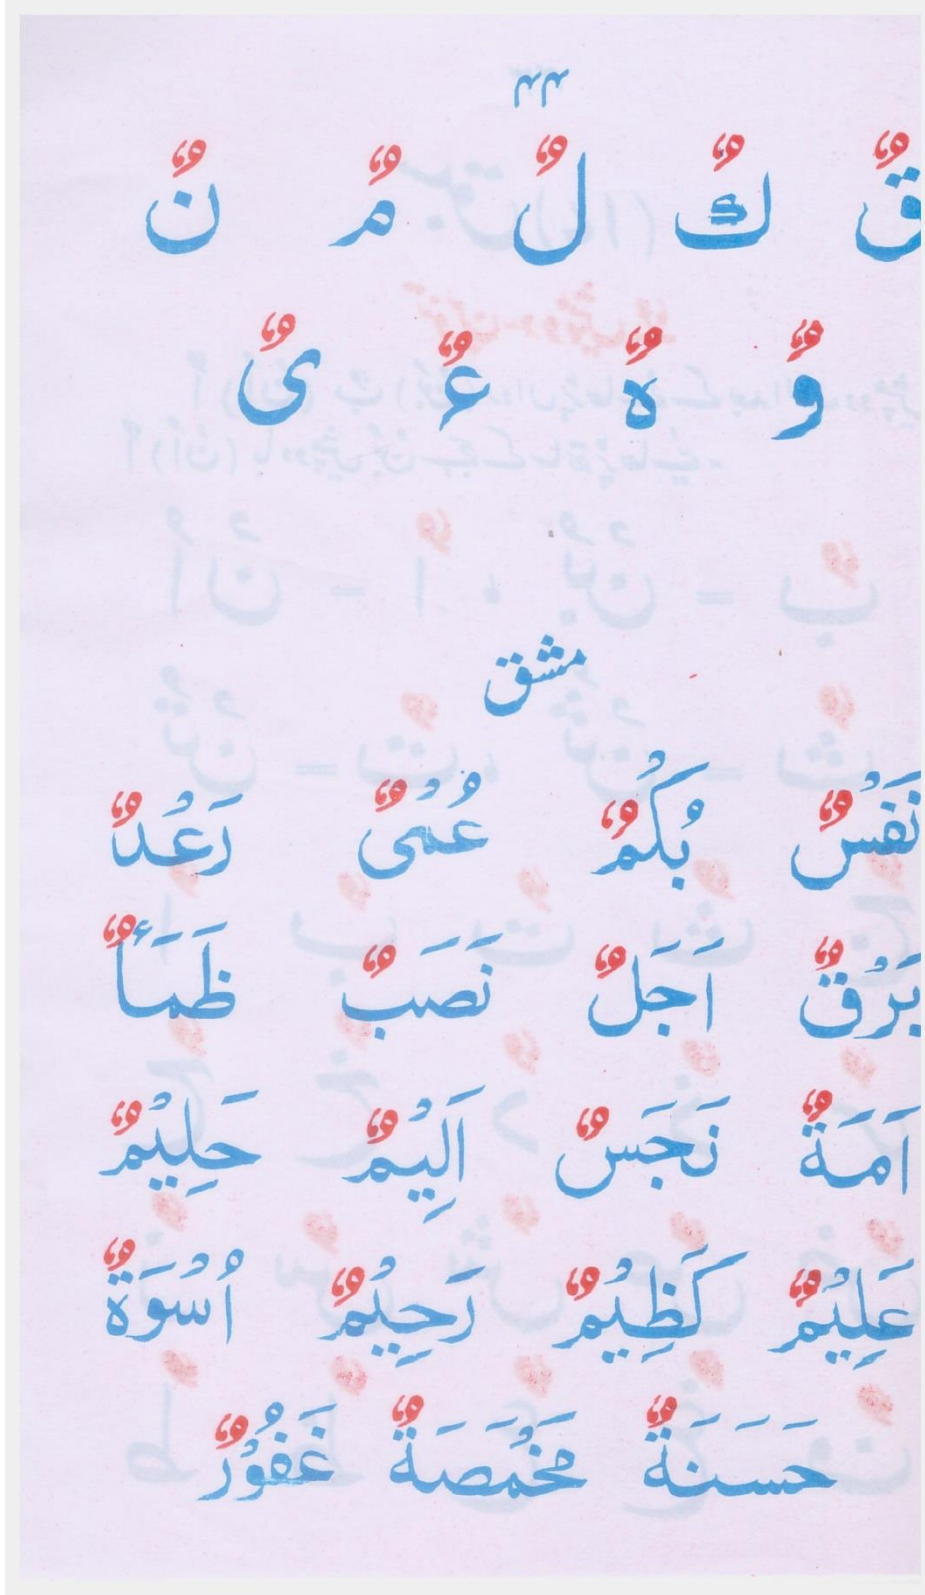 ۲۴
قٌ كٌ لٌ مٌ نٌ
وٌ هٌ ءٌ یٌ
مشق
نَفْسٌ بُكْمٌ عُمْیٌ رَعْدٌ
بَرْقٌ اَجَلٌ نَصَبٌ ظَمَأٌ
اَمَةٌ نَجَسٌ اَلِیْمٌ حَلِیْمٌ
عَلِیْمٌ كَظِیْمٌ رَحِیْمٌ اُسْوَةٌ
حَسَنَةٌ مَخْمَصَةٌ غَفُوْرٌ